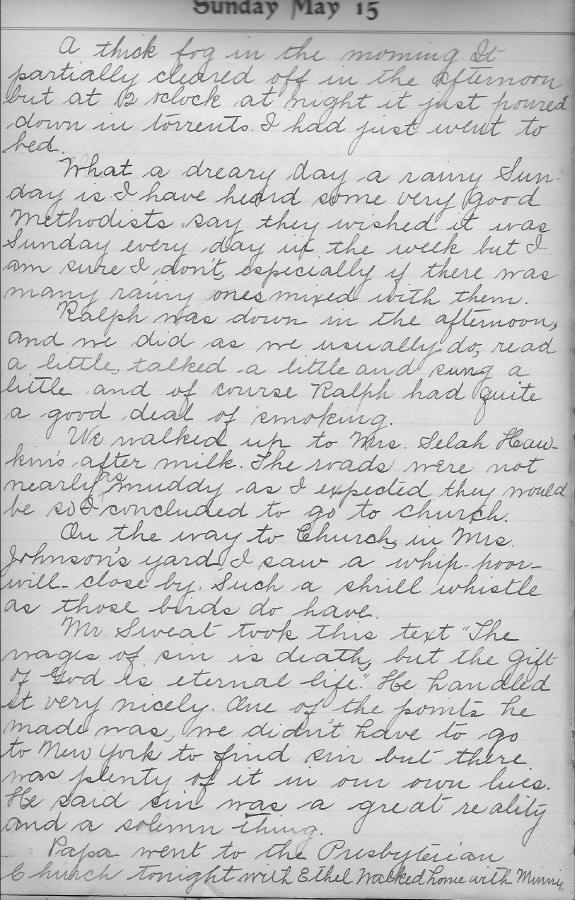 Sunday May 15
A thick fog in the morning It
partially cleared off in the afternoon
but at 12 oclock at night it just poured
down in torrents. I had just went to
bed.
What a dreary day a rainy Sun-
day is I have heard some very good
Methodists say they wished it was
Sunday every day in the week but I
am sure I don't, especially if there was
many rainy ones mixed with them.
Ralph was down in the afternoon,
and we did as we usually do, read
a little, talked a little and sung a
little and of course Ralph had quite
a good deal of smoking.
We walked up to Mrs. Selah Haw-
kin's after milk. The roads were not
nearly as muddy as I expected they would
be so I concluded to go to church.
On the way to Church, in Mrs.
Johnson's yard, I saw a whip-poor-
will close by. Such a shrill whistle
as those birds do have.
Mr. Sweat took this text "The
wages of sin is death, but the gift
of God is eternal life". He handled
it very nicely. One of the points he
made was, we didn't have to go
to New York to find sin but there
was plenty of it in our own lives.
He said sin was a great reality
and a solemn thing.
Papa went to the Presbyterian
Church tonight with Ethel Walked home with Minnie